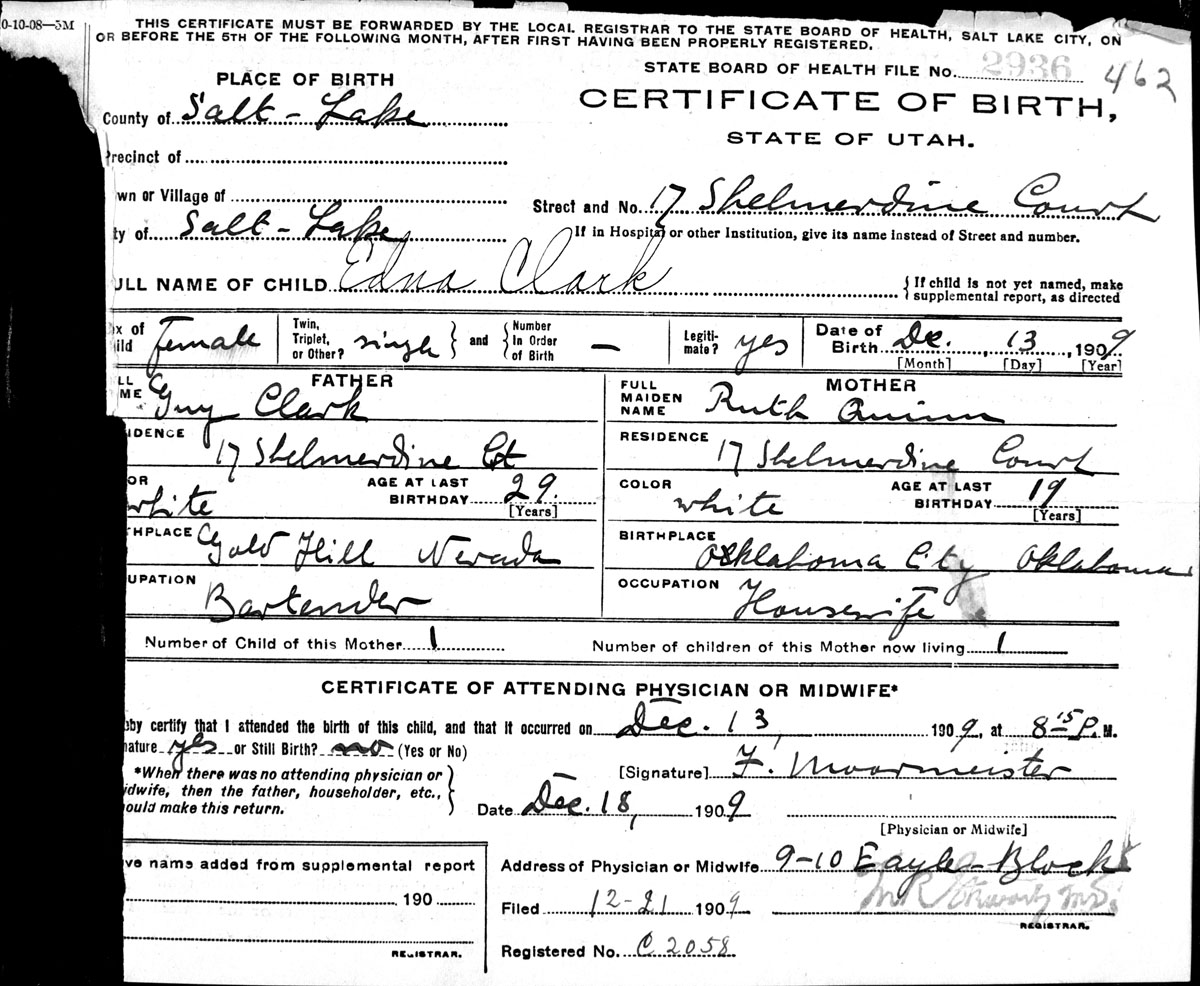 0-10-08—3M
THIS CERTIFICATE MUST BE FORWARDED BY THE LOCAL REGISTRAR TO THE STATE BOARD OF HEALTH, SALT LAKE CITY, ON
OR BEFORE THE 5TH OF THE FOLLOWING MONTH, AFTER FIRST HAVING BEEN PROPERLY REGISTERED.
STATE BOARD OF HEALTH FILE No. 2936 462
PLACE OF BIRTH
CERTIFICATE OF BIRTH,
County of Salt-Lake
STATE OF UTAH.
Precinct of
wn or Village of
Street and No. 17 Shelmerdine Court
ty of Salt-Lake
If in Hospital or other Institution, give its name instead of Street and number.
ULL NAME OF CHILD Edna Clark
{If child is not yet named, make supplemental report, as directed
ex of ild Female Twin, Triplet, or Other? single } and { Number In Order of Birth — Legiti- mate? yes Date of Birth Dec. 13, 1909
[Month] [Day] [Year]
FATHER MOTHER
LL ME Guy Clark FULL MAIDEN NAME Ruth Quinn
IDENCE 17 Shelmerdine Ct RESIDENCE 17 Shelmerdine Court
OR white AGE AT LAST BIRTHDAY 29. [Years] COLOR white AGE AT LAST BIRTHDAY 19 [Years]
THPLACE Gold Hill Nevada BIRTHPLACE Oklahoma City Oklahoma
UPATION Bartender OCCUPATION Housewife
Number of Child of this Mother 1 Number of children of this Mother now living 1
CERTIFICATE OF ATTENDING PHYSICIAN OR MIDWIFE*
eby certify that I attended the birth of this child, and that it occurred on Dec. 13, 1909, at 8 15 P. M.
ature yes or Still Birth? no (Yes or No)
*When there was no attending physician or
idwife, then the father, householder, etc.,
ould make this return.
[Signature] F. Moormeister
Date Dec. 18, 1909
[Physician or Midwife]
ve name added from supplemental report
Address of Physician or Midwife 9-10 Eagle-Block
190
Filed 12-21 1909
REGISTRAR.
REGISTRAR.
Registered No. C 2058